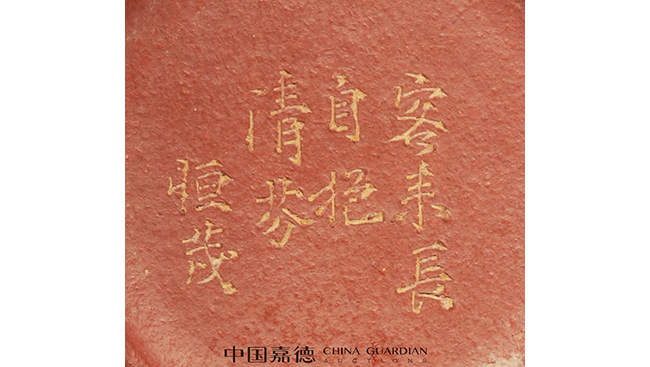 客来長
自挹
清芬
恒茂
中国嘉德 CHINA GUARDIAN
AUCTIONS